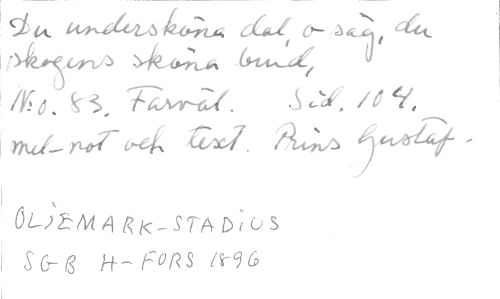 Du undersköna dal, o säg, du
skogens sköna lund,
No. 83. Farväl. Sid. 104.
mel-not och text. Prins Gustaf.
OLJEMARK-STADIUS
SGB H-FORS 1896